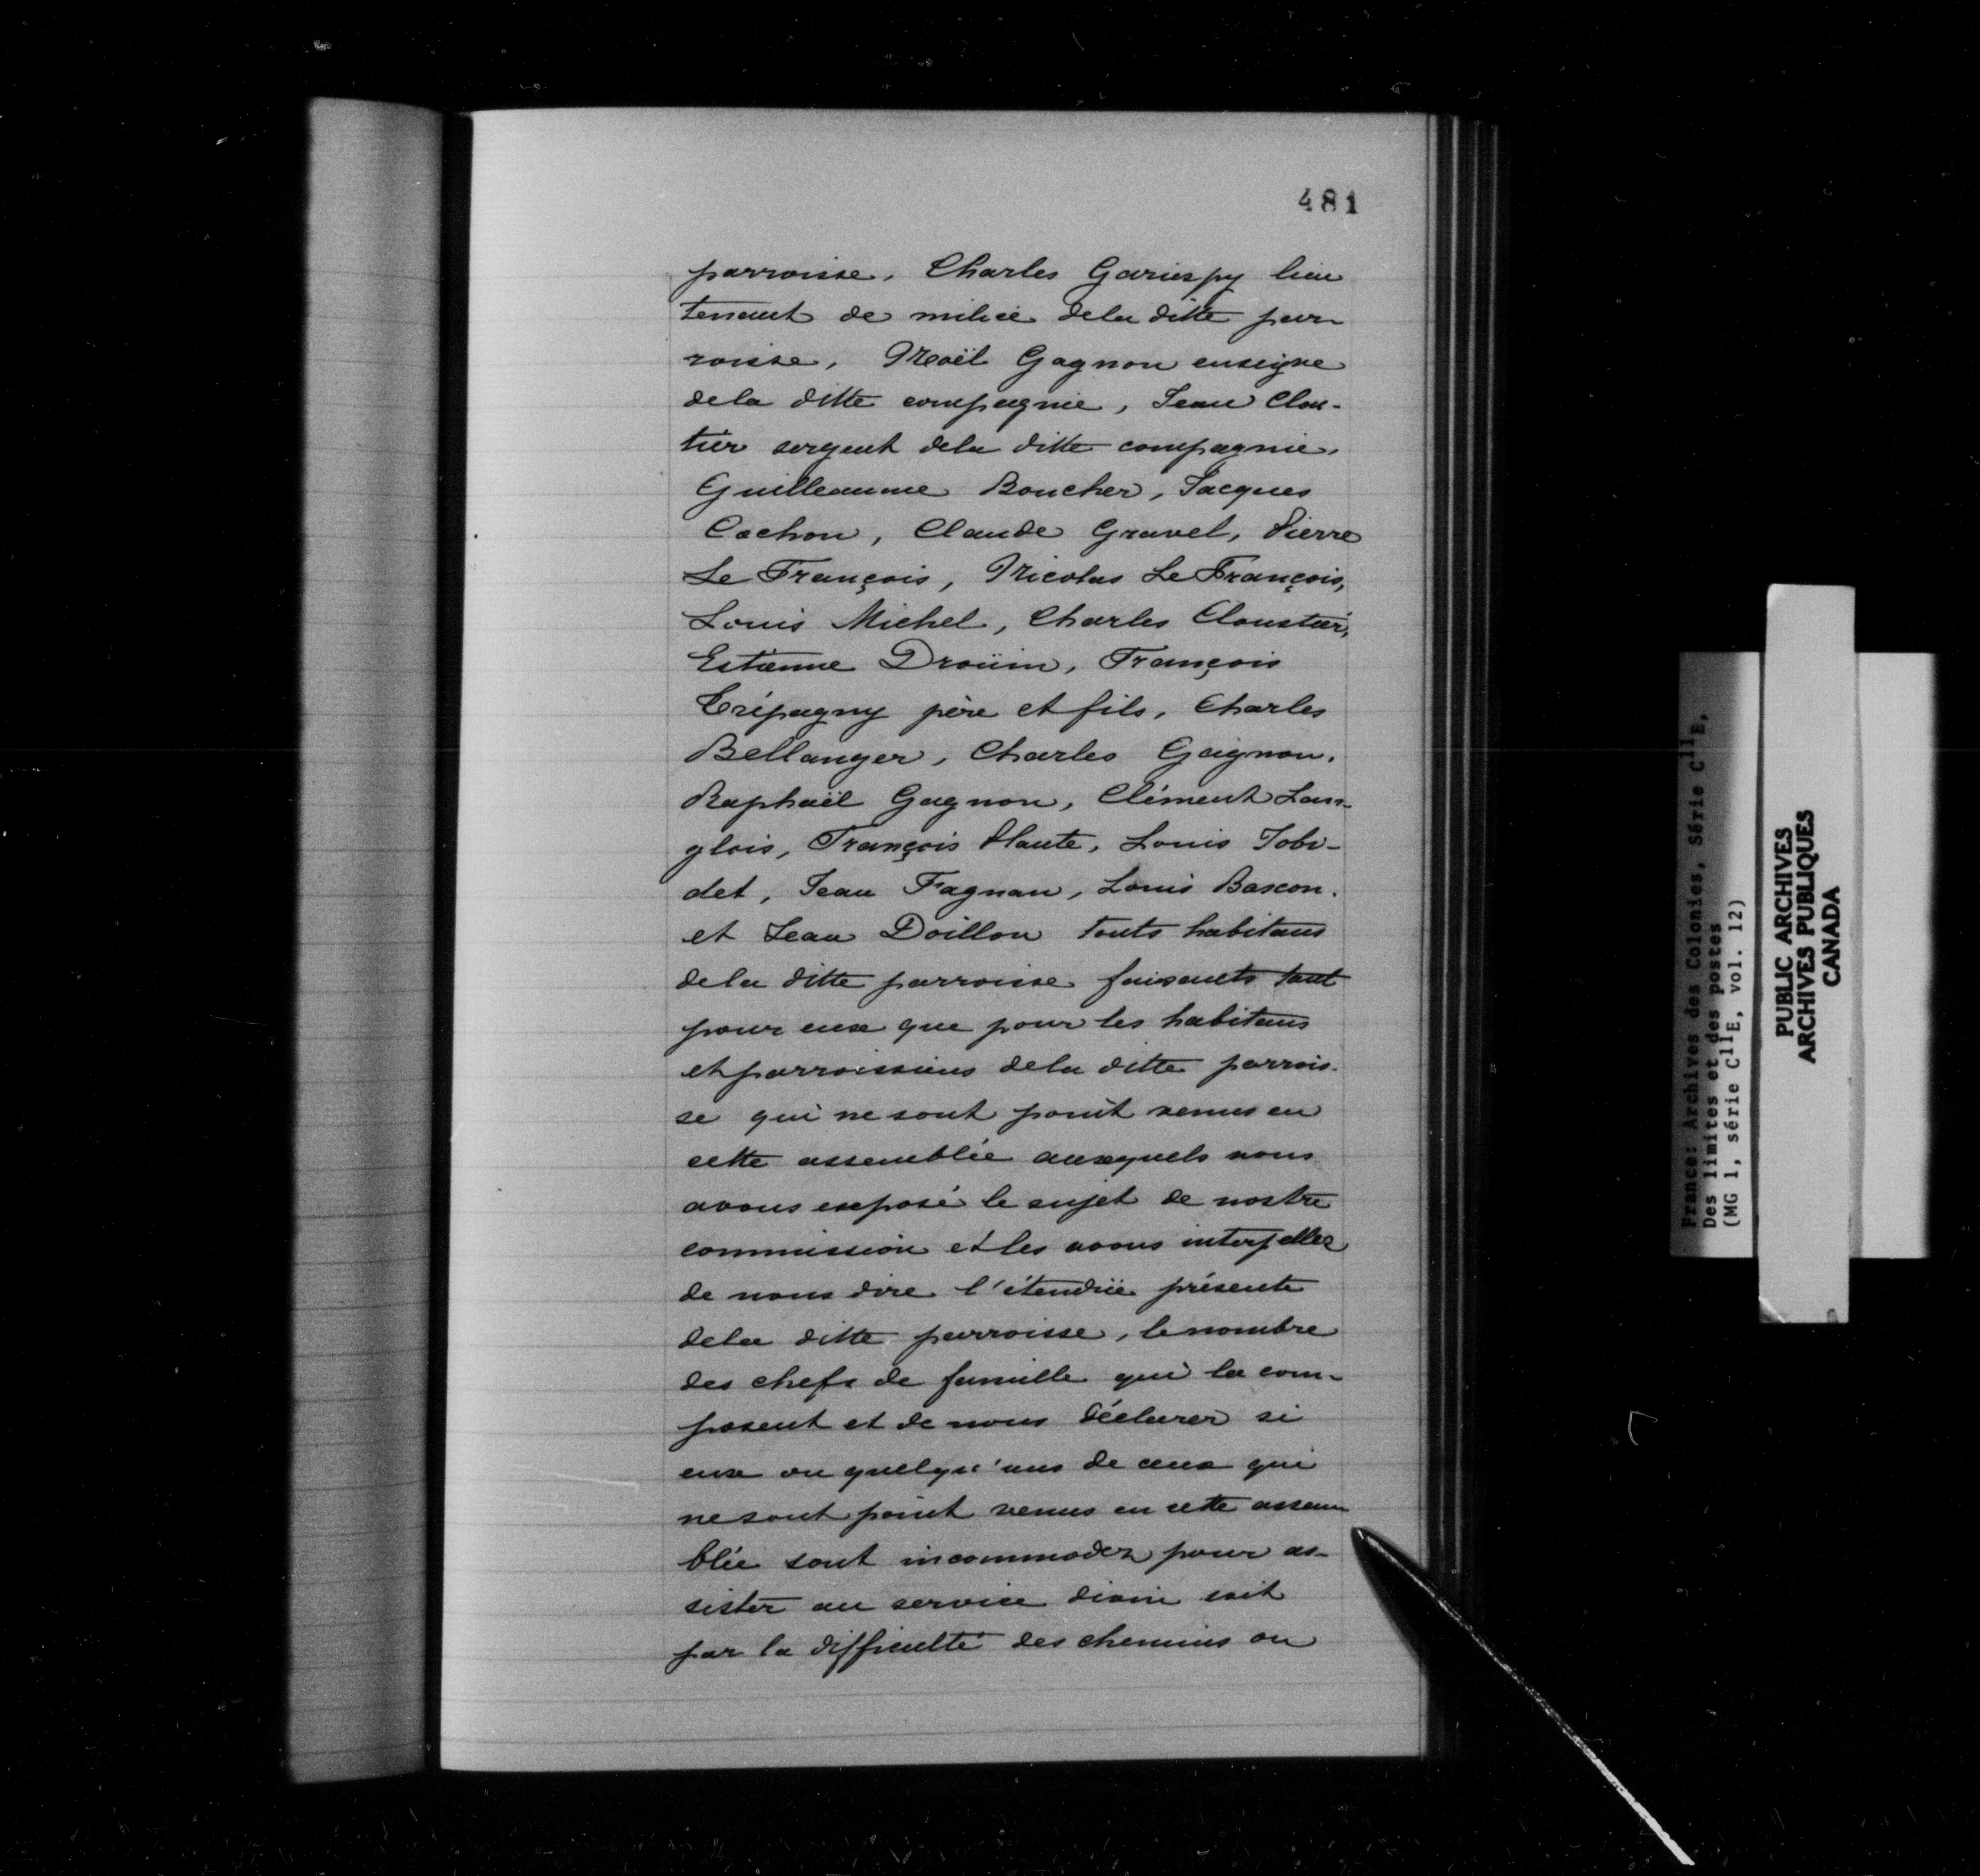 481
parroisse, Charles Gariespy lieu
tenant de milice dela ditte par-
roisse, Noël Gagnon enseigne
dela ditte compagnie, Jean Clou-
tier sergent dela ditte compagnie,
Guilleaume Boucher, Jacques
Cochon, Claude Gravel, Pierre
Le François, Nicolas Le François,
Louis Michel, Charles Cloustier,
Estienne Droüin, François
Trépagny père et fils, Charles
Bellanger, Charles Gagnon,
Raphaël Gagnon, Clément Lan-
glois, François Plante, Louis Jobi-
det, Jean Fagnan, Louis Bascon.
et Jean Doillon touts habitans
dela ditte parroisse faisants tant
pour eux que pour les habitans
et parroissiens dela ditte parrois-
se qui ne sont point venus en
cette assemblée auxquels nous
avons exposé le sujet de nostre
commission et les avons interpellez
de nous dire l'étendüe présente
dela ditte parroisse, le nombre
des chefs de famille qui la com-
posent et de nous déclarer si
eux ou quelqu'uns de ceux qui
ne sont point venus en cette assem
blée sont incommodez pour as-
sister au service divin soit
par la difficulté des chemins ou
France: Archives des Colonies, Série C11E,
Des limites et des postes
(MG 1, série C11E, vol. 12)
PUBLIC ARCHIVES
ARCHIVES PUBLIQUES
CANADA